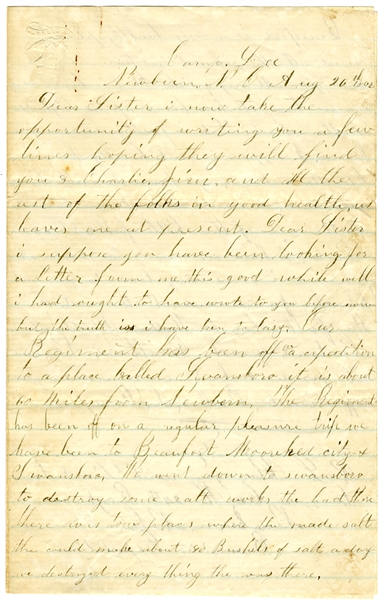 Camp Lee
Newbern N. C. Aug 26th 1862
Dear Sister i now take the
opportunity of writing you a few
lines hoping they will find
you & Charlie, Jim, and all the
rest of the folks in good health, as
leaves me at present. Dear Sister
i suppose you have been looking for
a letter from me this good while well
i had ought to have wrote to you before now
but, the truth is i have been to lasy. Our
Regiment has been off on a expedition
to a place called Swansboro it is about
60 miles from Newbern, The Regiment
has been off on a regular pleasure trip we
have been to Beaufort Moorehed city &
Swansboro, We went down to swansboro
to destroy some salt works the had there
there was two places where the made salt
the could make about 80 Bushils of salt a day
we destroyd every thing the was there,